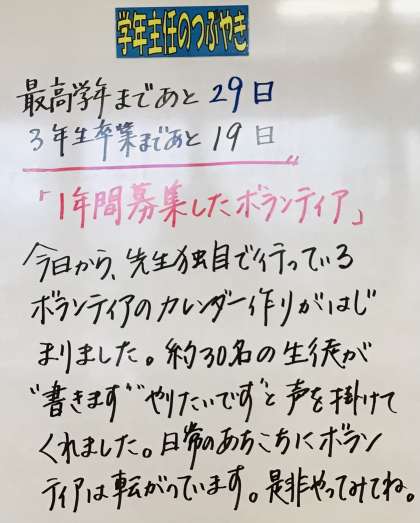 学年主任のつぶやき
最高学年まであと 29日
3年生卒業まであと 19日
「1年間募集したボランティア」
今日から、先生独自で行っている
ボランティアのカレンダー作りがはじ
まりました。約30名の生徒が
"書きます" "やりたいです"と声を掛けて
くれました。日常のあちこちにボラン
ティアは転がっています。是非やってみてね。